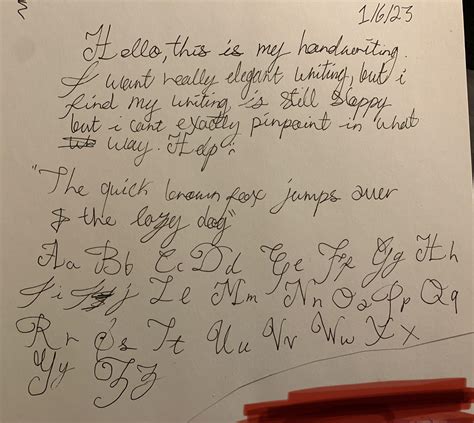 1/6/23
Hello, this is my handwriting.
I want really elegant writing, but i
find my writing is still sloppy
but i cant exactly pinpoint in what
way. Help :
"The quick brown fox jumps over
the lazy dog"
Aa Bb Cc Dd Ee Ff Gg Hh
Ii Jj Ll Mm Nn Oo Pp Qq
Rr Ss Tt Uu Vv Ww Xx
Yy Zz